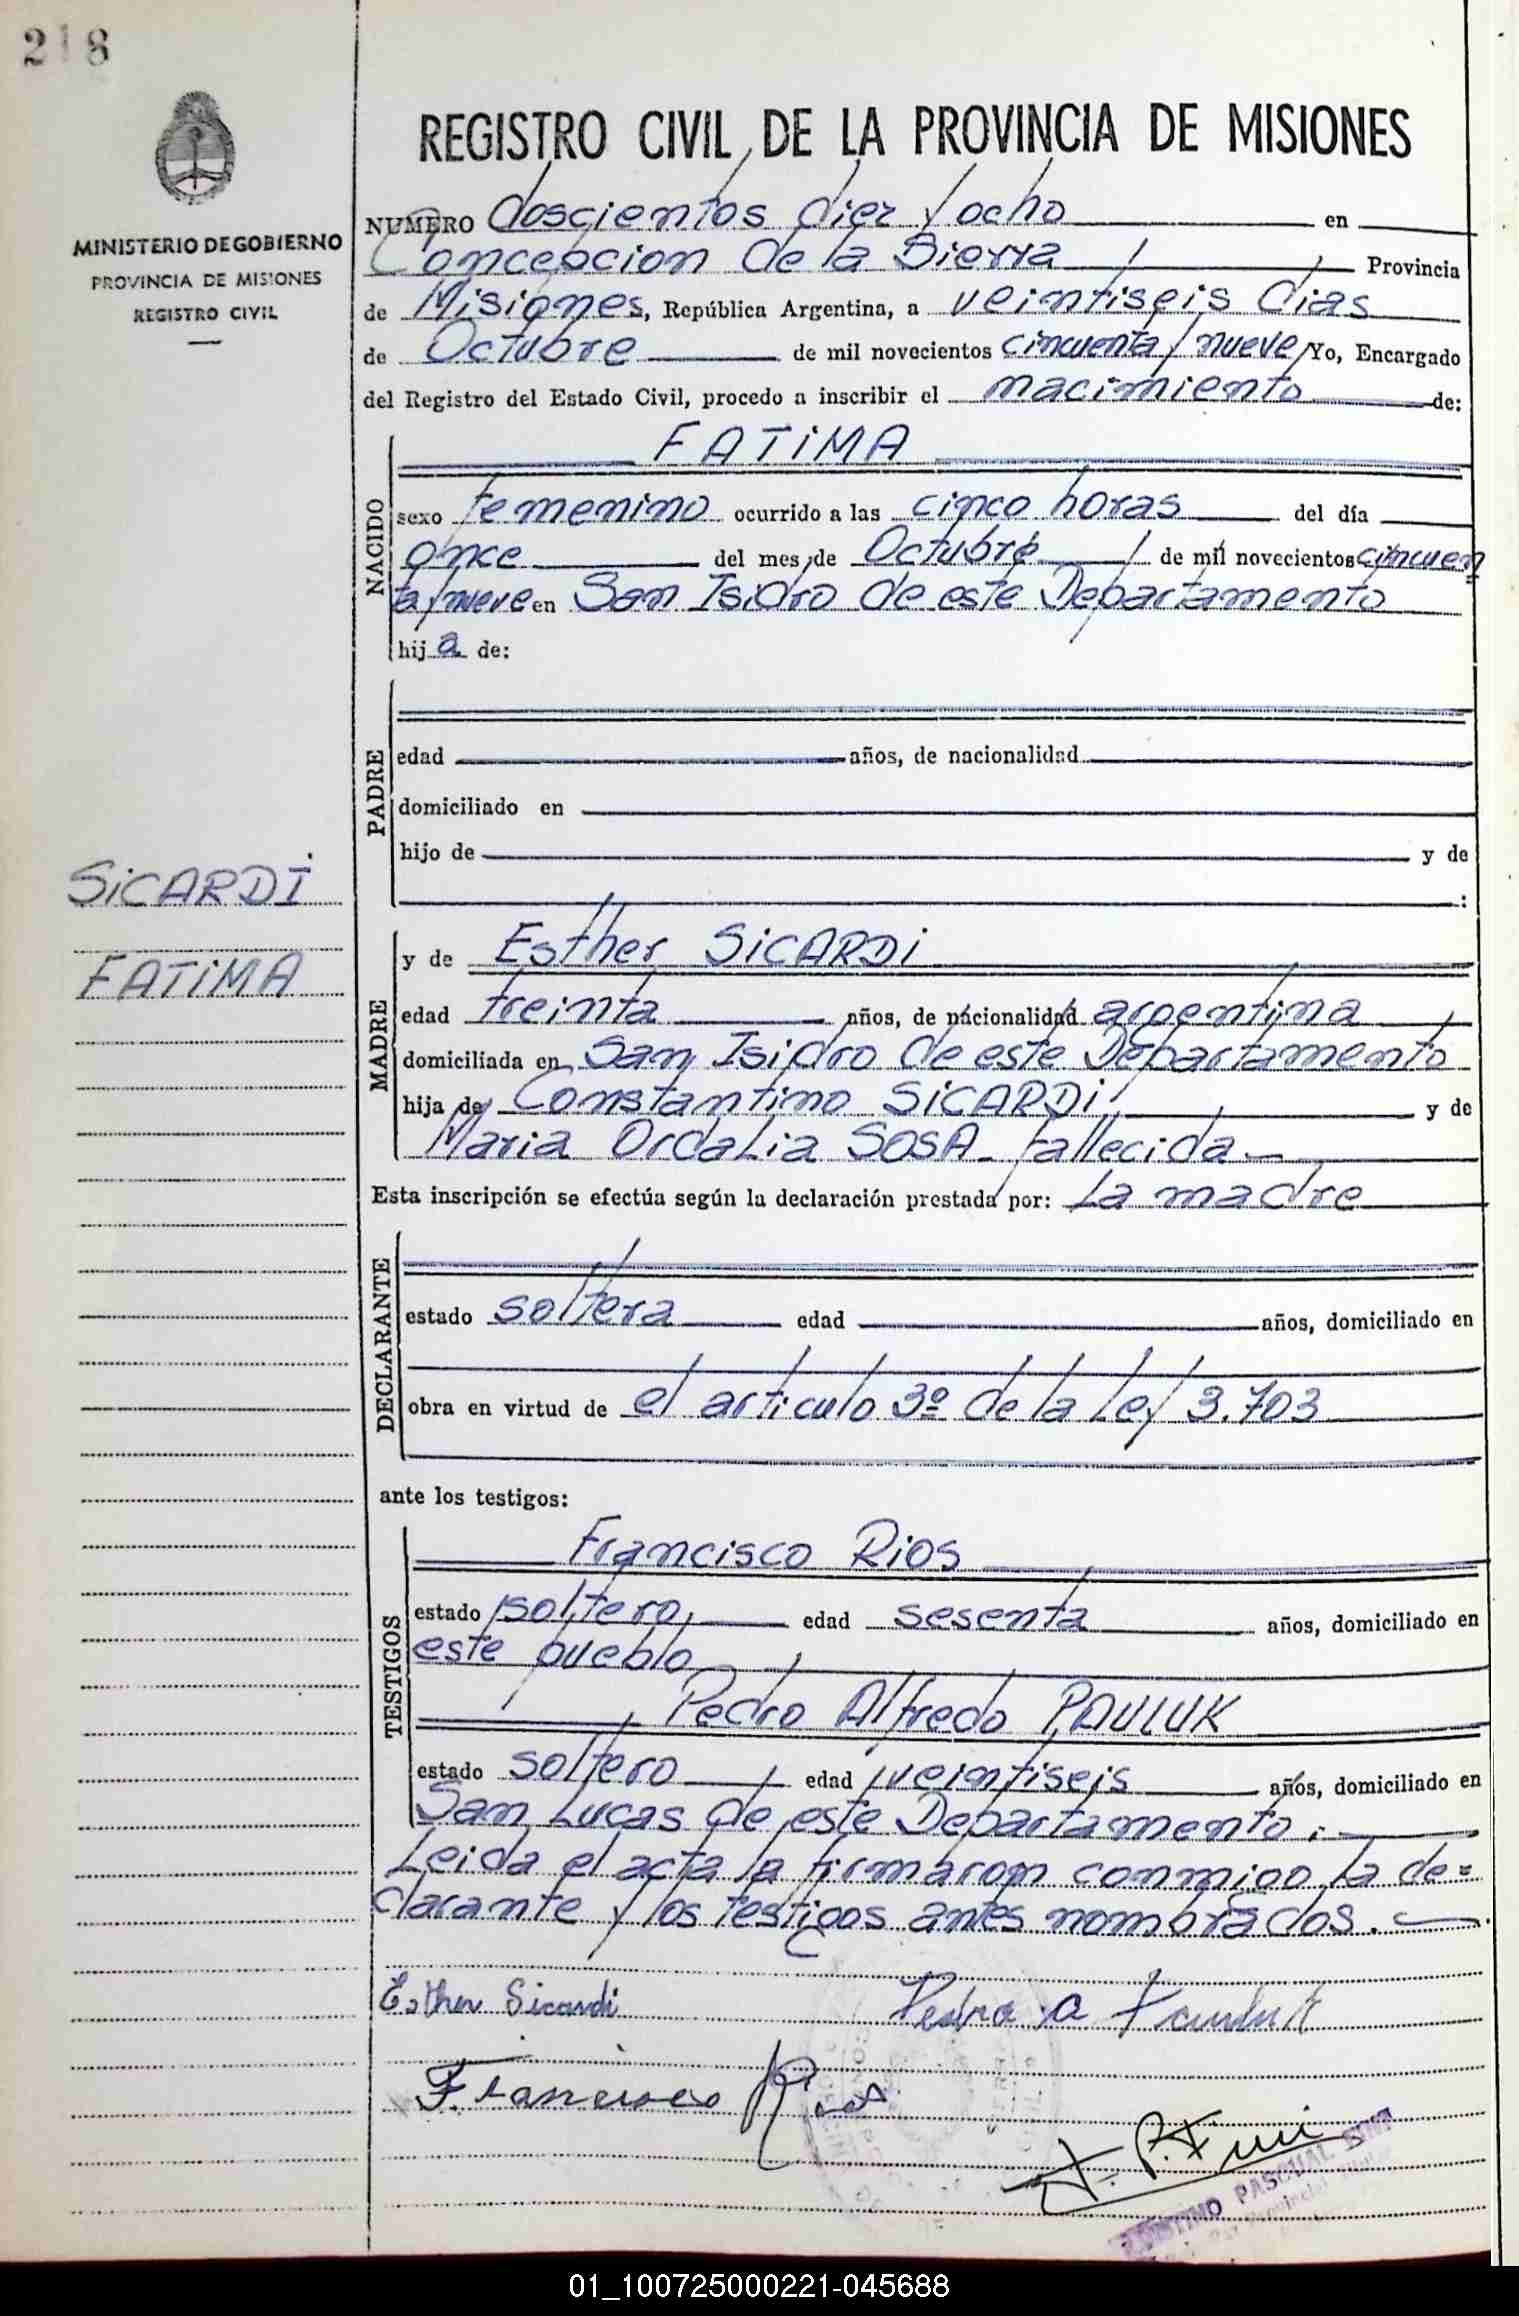 218
MINISTERIO DE GOBIERNO
PROVINCIA DE MISIONES
REGISTRO CIVIL
SiCARDI
FATiMA
REGISTRO CIVIL DE LA PROVINCIA DE MISIONES
NUMERO doscientos diez y ocho en
Concepcion de la Sierra Provincia
de Misiones, República Argentina, a veintiseis dias
de Octubre de mil novecientos cincuenta y nueve Yo, Encargado
del Registro del Estado Civil, procedo a inscribir el nacimiento de:
NACIDO
FATiMA
sexo femenino ocurrido a las cinco horas del día
once del mes de Octubre de mil novecientos cincuen
ta y nueve en San Isidro de este Departamento
hij a de:
PADRE
edad años, de nacionalidad
domiciliado en
hijo de y de
:
MADRE
y de Esther SiCARDi
edad treinta años, de nacionalidad argentina
domiciliada en San Isidro de este Departamento
hija de Constantino SiCARDi y de
Maria Ordalia SOSA - fallecida
Esta inscripción se efectúa según la declaración prestada por: La madre
DECLARANTE
estado soltera edad años, domiciliado en
obra en virtud de el articulo 3º de la Ley 3.703
ante los testigos:
TESTIGOS
Francisco Rios
estado soltero, edad sesenta años, domiciliado en
este pueblo
Pedro Alfredo PAULUK
estado soltero edad veintiseis años, domiciliado en
San Lucas de este Departamento.
Leida el acta la firmaron conmigo la de=
clarante y los testigos antes nombrados.
Esther Sicardi
Pedro A Pauluk
Francisco Rios
PASCUAL
01_100725000221-045688